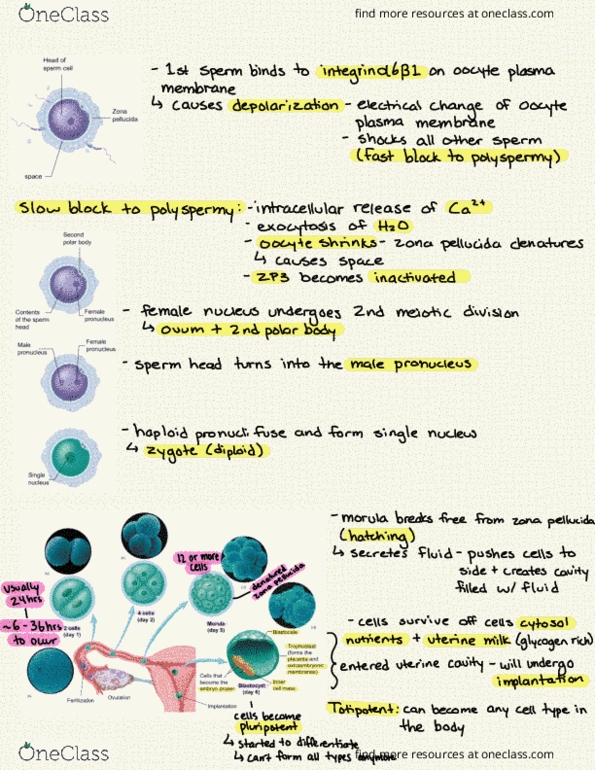 OneClass
find more resources at oneclass.com
Head of
sperm cell
Zona
pellucida
space
- 1st sperm binds to integrinα6β1 on oocyte plasma
membrane
↳ causes depolarization - electrical change of oocyte
plasma membrane
- shocks all other sperm
(fast block to polyspermy)
Slow block to polyspermy: - intracellular release of Ca²⁺
- exocytosis of H₂O
- oocyte shrinks - zona pellucida denatures
↳ causes space
- ZP3 becomes inactivated
Second
polar body
Contents
of the sperm
head
Female
pronucleus
- female nucleus undergoes 2nd meiotic division
↳ ovum + 2nd polar body
Male
pronucleus
Female
pronucleus
- sperm head turns into the male pronucleus
- haploid pronucli fuse and form single nucleus
↳ zygote (diploid)
Single
nucleus
- morula breaks free from zona pellucida
(hatching)
↳ secretes fluid - pushes cells to
side + creates cavity
filled w/ fluid
- cells survive off cells cytosol
nutrients + uterine milk (glycogen rich)
entered uterine cavity - will undergo
implantation
Totipotent: can become any cell type in
the body
usually
24hrs
~6-36hrs
to occur
12 or more
cells
denatured
zona pellucida
2 cells
(day 1)
4 cells
(day 2)
Morula
(day 3)
Blastocele
Trophoblast
(forms the
placenta and
extraembryonic
membranes)
Cells that
become the
embryo proper
Blastocyst
(day 6)
Inner
cell mass
Fertilization
Ovulation
Implantation
cells become
pluripotent
↳ started to differentiate
↳ can't form all types anymore
OneClass
find more resources at oneclass.com